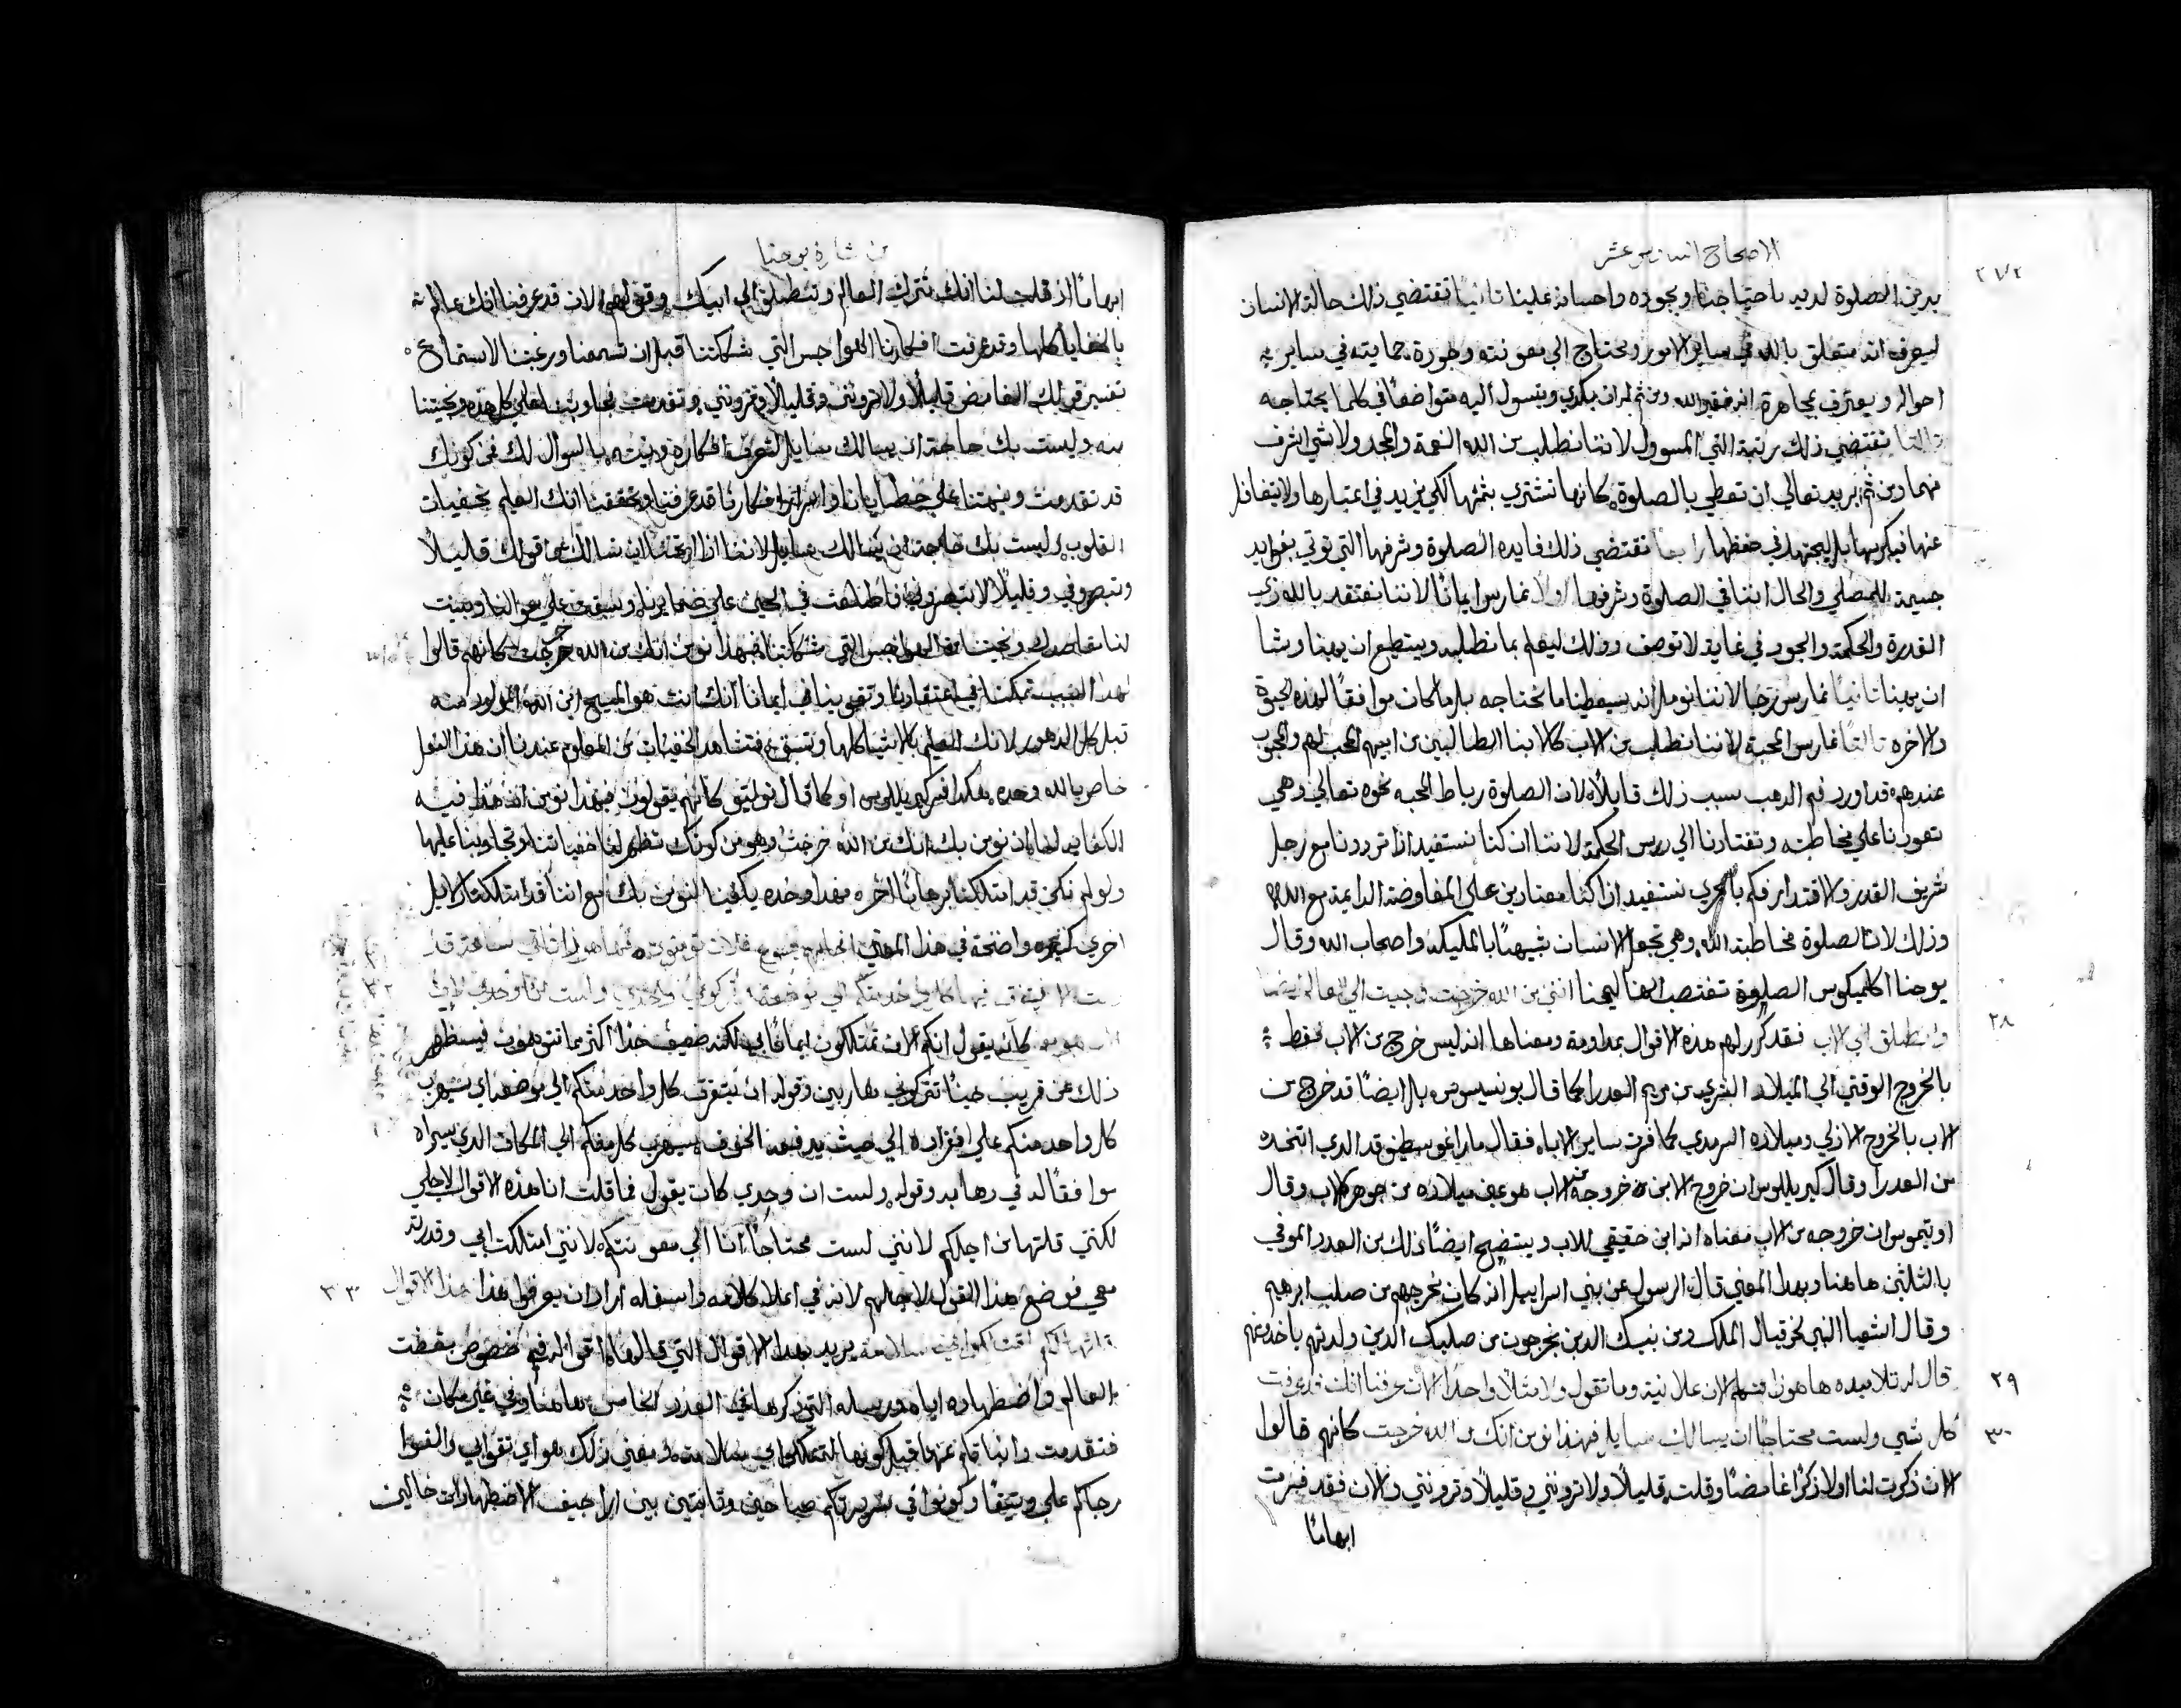 الاصحاح السادس عشر
٢٧٢
يريد من الصلوة لديه باحتياجنا وبجوده واحسانه علينا ثانيًا تقتضي ذلك حالة الانسان
ليعرف انه متعلق بالله في ساير الامور ومحتاج الي معونته وطوره حمايته في ساير
احواله ويعترف مجاهرة انه فقير الله ومن ثم يكدي ويتسول اليه متواضعًا في كلما يحتاجه
ثالثًا تقتضي ذلك رتبة الشي المسوول لاننا نطلب من الله النعمة والمجد ولا شي اشرف
منهما ومن ثم يريد تعالي ان تعطي بالصلوة كانها تشتري بثمنها لكي يزيد في اعتبارها ولا يتغافل
عنها فيكرمها بل يجتهد في حفظها رابعًا تقتضي ذلك فايدة الصلوة وشرفها التي توتي بفوايد
جسيمة للمصلي والحال اننا في الصلوة وشرفها اولًا نمارس ايمانًا لاننا نعتقد بالله ذي
القدرة والحكمة والجود في غاية لا توصف وذلك ليعلم بما نطلبه ويستطيع ان يهبنا ويشا
ان يهبنا ثانيًا نمارس رجا لاننا نومل انه سيعطينا ما نحتاجه بل ما كان موافقًا لهذه الحيوة
والاخره ثالثًا نمارس المحبة لاننا نطلب من الاب كالابنا الطالبين من ابيهم المحب لهم والمحبوب
عندهم قد اورد فم الدهب سبب ذلك قايلًا لان الصلوة رباط المحبه نحوه تعالي وهي
تعودنا علي مخاطبته وتقتادنا الي درس الحكمة لاننا ان كنا نستفيد اذا ترددنا مع رجل
شريف القدر والاقتدار فكم بالحري نستفيد اذا كنا معتادين علي المفاوضة الدايمة مع الله
وذلك لان الصلوة مخاطبة الله وهي تجعل الانسان شبيهًا بالمليكه واصحاب الله وقال
يوحنا اكليمكوس الصلوة تغتصب انني من الله خرجت وجيت الي العالم
٢٨
وانطلق الي الاب فقد كرر لهم هذه الاقوال بمداومة ومعناها انه ليس خرج من الاب فقط
بالخروج الوقتي الي الميلاد البشري من مريم العدرا كما قال يونسيوس بل ايضًا قد خرج من
الاب بالخروج الازلي وميلاده السرمدي كما فسرت ساير الاباء فقال ماراغوسطينوس الدي اتخده
من العدرا وقال كيريللوس ان خروج الابن خروجه من الاب هو عين ميلاده من جوهر الاب وقال
اوتيموس ان خروجه من الاب معناه انه ابن حقيقي للاب ويتضح ايضًا ذلك من العدد الموفي
بالثلثين هاهنا وبهدا المعني قال الرسول عن بني اسراييل انه كان يخرجهم من صلب ابرهيم
وقال اشعيا النبي لحزقيال الملك ومن بنيك الدين يخرجون من صلبك الدين ولدتهم ياخدونهم
٢٩
قال له تلاميده ها هوذا تتكلم الان علانية وما تقول ولا مثلًا واحدًا الان عرفنا انك تعرف
٣٠
كل شي ولست محتاجًا ان يسالك سايل فبهذا نومن انك من الله خرجت كانهم قالوا
الان ذكرت لنا اولا ذكرًا غامضًا وقلت قليلًا ولا ترونني وقليلًا وترونني والان فقد فسرت
ابهامًا
من بشارة يوحنا
ابهامًا اذ قلت لنا انك تترك العالم وتنطلق الي ابيك وقولهم الان قد عرفنا انك عالم
بالخفايا كلها وقد عرفت افكارنا الهواجس التي شككتنا قبل ان تسمعنا ورغبنا الاستماع
تفسير قولك الغامض قليلًا ولا ترونني وقليلًا وترونني وتقدمت تجاوبنا علي كل هذه وتجيبنا
منه وليست بك حاجة ان يسالك سايل لتعرف افكاره ونيته بالسوال لك فمن كونك
قد تقدمت ونبهتنا علي خطايانا واسرار افكارنا قد عرفنا وتحققنا انك العليم بخفيات
القلوب وليست بك حاجة ان يسالك سايل لاننا اذا ارتمنا ان نسالك عن قولك قليلًا
وتبصروني وقليلًا لا تبصرونني فاطلعت في الحين علي ضمايرنا وسبقت علي سوالنا وبينت
لنا مقاصدك ونجيتنا من الهواجس التي شككتنا فبهذا نومن انك من الله خرجت كانهم قالوا
لهدا السبب تمكننا في اعتقادنا وتقوينا في ايماننا انك انت هو المسيح ابن الله المولود منه
قبل كل الدهور لانك العليم بالاشيا كلها وتسبق فتشاهد الخفيات من المعلوم عندنا ان هذا الفعل
خاص بالله وحده هكدا فسر كيريللوس او كما قال توليتو كانهم يقولون فبهذا نومن اننا هذا فيه
الكفاية لنا بان نومن بك انك من الله خرجت وهو من كونك تظهر لنا خفياتنا وتجاوبنا عليها
ولو لم نكن قد امتلكنا برهانًا اخره فهدا وحده يكفينا لنومن بك مع اننا قد امتلكنا دلايل
اخري كثيره واضحة في هذا المعني اجابهم يسوع فالان تومنون فها هوذا تاتي ساعة وقد
اتت لان يتفرق فيها كل واحد منكم الي موضعه وتتركوني وحدي ولست انا وحدي لان
الاب هو معي كانه يقول انكم الان تمتلكون ايمانًا بي لكنه ضعيف جدًا اكثر مما تتوهمون فيستظهر
ذلك عن قريب حينًا تتركوني هاربين وقوله ان يتفرق كل واحد منكم الي موضعه اي سيهرب
كل واحد منكم علي انفراده الي حيث يدفعه الخوف سيهرب كل منكم الي المكان الدي سيراه
موافقًا له في رهابه وقوله ولست ان وحدي كان يقول فما قلت انا هذه الاقوال لاجلي
لكنني قلتها من اجلكم لانني لست محتاجًا انا الي معونتكم لانني امتلكت ابي وقدرته
٣٣
معي فوضع هذا القول لاجلهم لانه في اعلا كلامه واسفله اراد ان يعرفوا هذا هذا الاقوال
قلتها لكم لتمتلكوا بي سلامة يريد بهدا الاقوال التي قالها اقواله في خصوص بغضة
العالم واضطهاده اياهم ورسله التي ذكرها في العدد الخامس هاهنا وفي غير مكان
فتقدمت وانباتكم عنها قبل كونها لتمتلكوا بي سلامة ومعني ذلك هو اي تقوا بي والقوا
رجاكم علي وثيقًا وكونوا في سريرتكم صاحين وثابتين بين اراجيف الاضطهادات خالين